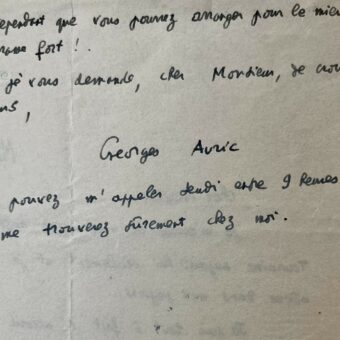 ependant que vous pourrez arranger pour le mieu
fort !.
je vous demande, cher Monsieur, de croi
Georges Auric
pouvez m'appeler Jeudi entre 9 heures
me trouverez sûrement chez moi.